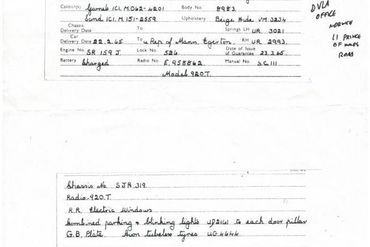 Colour(s) Gunab ICI. M.062-4201 Body No. 8983
Sand ICI. M. 151-2559 Upholstery Beige Hide VM 3234
Chassis Delivery Date To Springs LH UR. 3021
Car Delivery Date 22.2.65 To Rep of Mann Egerton. RH UR 2993.
Engine No SR 159 J. Lock No. 526 Date of Issue of Guarantee 23.2.65.
Battery Charged Radio No. E.958862. Manual No. S.C.111
Model 920T.
DVLA
OFFICE
11 PRINCE
OF WALES
ROAD
Chassis No SJR 319.
Radio 920.T.
R.R. Electric Windows
Combined parking & blinking lights to each door pillar
G.B. Plate. Avon tubeless tyres UG.4646